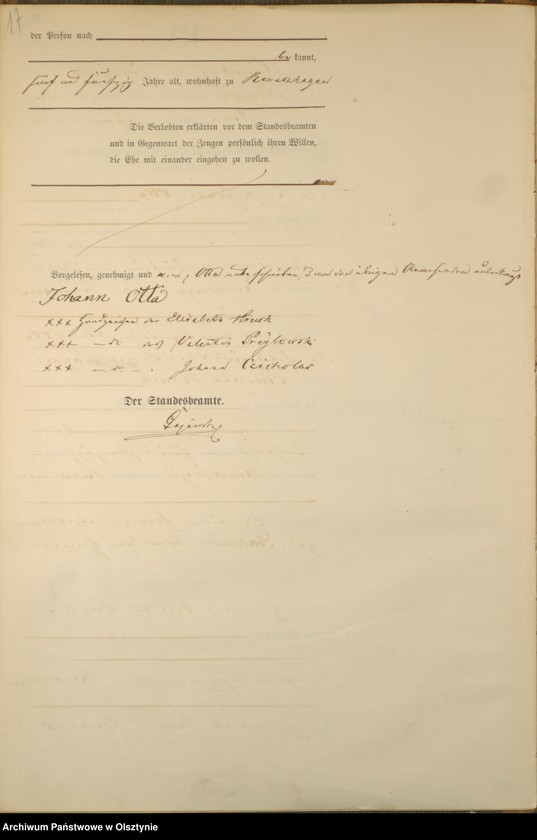 17
der Person nach
be kannt,
fünf und fünfzig Jahre alt, wohnhaft zu
Die Verlobten erklärten vor dem Standesbeamten
und in Gegenwart der Zeugen persönlich ihren Willen,
die Ehe mit einander eingehen zu wollen.
Vorgelesen, genehmigt und von Otta unterschrieben, von den übrigen Anwesenden
Johann Otta
xxx Handzeichen der Elisabeth
xxx — do — des Valentin
xxx — do — Johann
Der Standesbeamte.
Archiwum Państwowe w Olsztynie